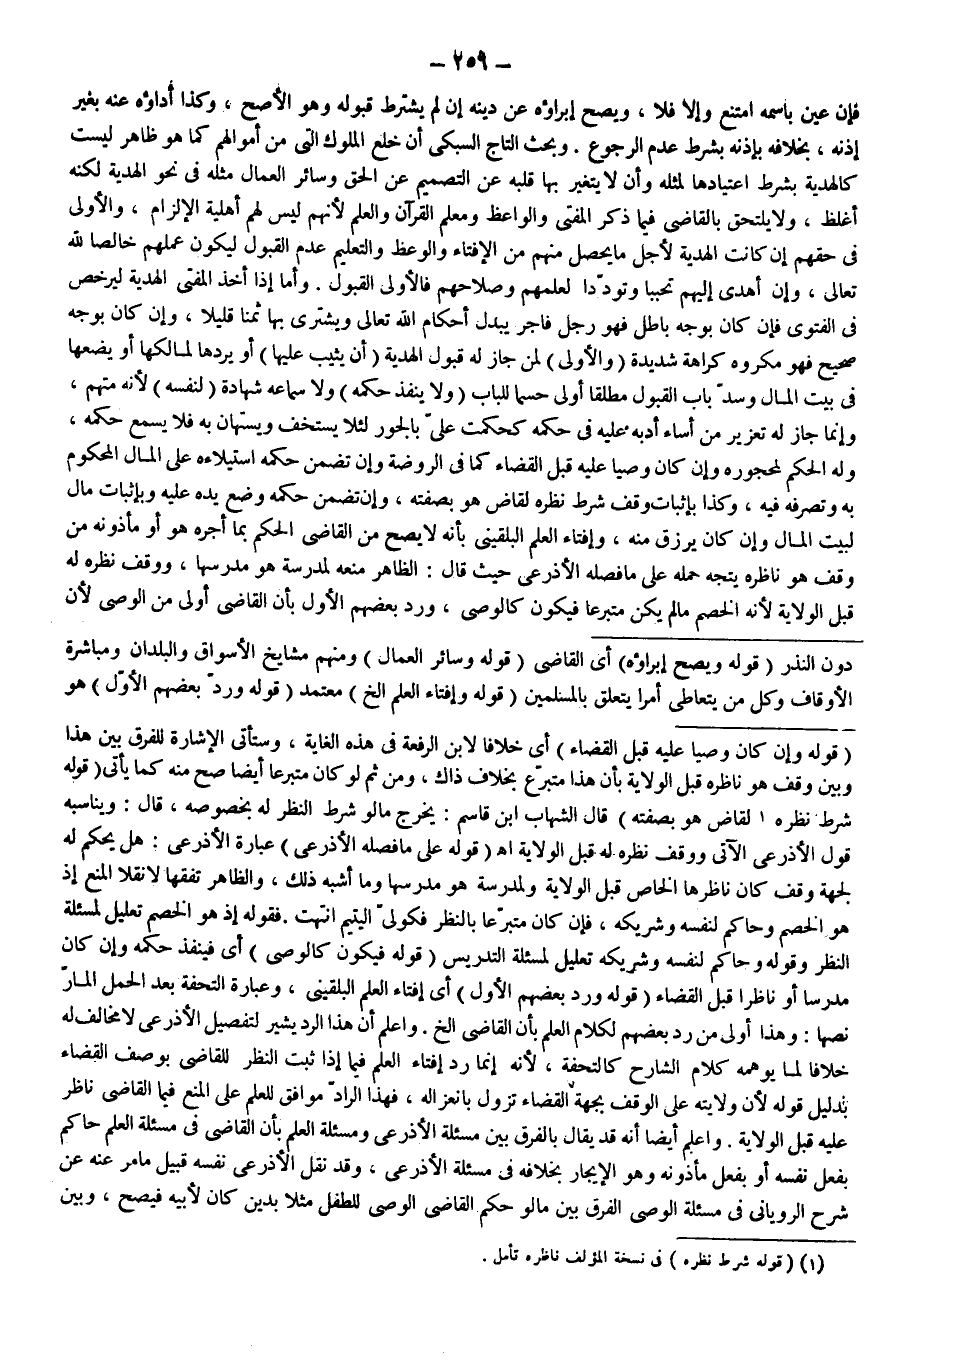 - ٢٥٩ -
فإن عين باسمه امتنع وإلا فلا ، ويصح إبراؤه عن دينه إن لم يشترط قبوله وهو الأصح ، وكذا أداؤه عنه بغير
إذنه ، بخلافه بإذنه بشرط عدم الرجوع . وبحث التاج السبكى أن خلع الملوك التى من أموالهم كما هو ظاهر ليست
كالهدية بشرط اعتيادها لمثله وأن لا يتغير بها قلبه عن التصميم عن الحق وسائر العمال مثله فى نحو الهدية لكنه
أغلظ ، ولايلتحق بالقاضى فيما ذكر المفتى والواعظ ومعلم القرآن والعلم لأنهم ليس لهم أهلية الإلزام ، والأولى
فى حقهم إن كانت الهدية لأجل مايحصل منهم من الإفتاء والوعظ والتعليم عدم القبول ليكون عملهم خالصا لله
تعالى ، وإن أهدى إليهم تحببا وتودّدا لعلمهم وصلاحهم فالأولى القبول . وأما إذا أخذ المفتى الهدية ليرخص
فى الفتوى فإن كان بوجه باطل فهو رجل فاجر يبدل أحكام الله تعالى ويشترى بها ثمنا قليلا ، وإن كان بوجه
صحيح فهو مكروه كراهة شديدة ( والأولى ) لمن جاز له قبول الهدية ( أن يثيب عليها ) أو يردها لمالكها أو يضعها
فى بيت المال وسدّ باب القبول مطلقا أولى حسما للباب ( ولا ينفذ حكمه ) ولا سماعه شهادة ( لنفسه ) لأنه متهم ،
وإنما جاز له تعزير من أساء أدبه عليه فى حكمه كحكمت علىّ بالجور لئلا يستخف ويستهان به فلا يسمع حكمه ،
وله الحكم لمحجوره وإن كان وصيا عليه قبل القضاء كما فى الروضة وإن تضمن حكمه استيلاءه على المال المحكوم
به وتصرفه فيه ، وكذا بإثبات وقف شرط نظره لقاض هو بصفته ، وإن تضمن حكمه وضع يده عليه وبإثبات مال
لبيت المال وإن كان يرزق منه ، وإفتاء العلم البلقينى بأنه لايصح من القاضى الحكم بما أجره هو أو مأذونه من
وقف هو ناظره يتجه حمله على مافصله الأذرعى حيث قال : الظاهر منعه لمدرسة هو مدرسها ، ووقف نظره له
قبل الولاية لأنه الخصم مالم يكن متبرعا فيكون كالوصى ، ورد بعضهم الأول بأن القاضى أولى من الوصى لأن
دون النذر ( قوله ويصح إبراؤه) أى القاضى ( قوله وسائر العمال ) ومنهم مشايخ الأسواق والبلدان ومباشرة
الأوقاف وكل من يتعاطى أمرا يتعلق بالمسلمين ( قوله وإفتاء العلم الخ ) معتمد ( قوله وردّ بعضهم الأوّل ) هو
( قوله وإن كان وصيا عليه قبل القضاء ) أى خلافا لابن الرفعة فى هذه الغاية ، وستأتى الإشارة للفرق بين هذا
وبين وقف هو ناظره قبل الولاية بأن هذا متبرّع بخلاف ذاك ، ومن ثم لو كان متبرعا أيضا صح منه كما يأتى ( قوله
شرط نظره ١ لقاض هو بصفته ) قال الشهاب ابن قاسم : يخرج مالو شرط النظر له بخصوصه ، قال : ويناسبه
قول الأذرعى الآتى ووقف نظره له قبل الولاية اه ( قوله على مافصله الأذرعى ) عبارة الأذرعى : هل يحكم له
لجهة وقف كان ناظرها الخاص قبل الولاية ولمدرسة هو مدرسها وما أشبه ذلك ، والظاهر تفقها لانقلا المنع إذ
هو الخصم وحاكم لنفسه وشريكه ، فإن كان متبرّعا بالنظر فكولىّ اليتيم انتهت . فقوله إذ هو الخصم تعليل لمسئلة
النظر وقوله وحاكم لنفسه وشريكه تعليل لمسئلة التدريس ( قوله فيكون كالوصى ) أى فينفذ حكمه وإن كان
مدرسا أو ناظرا قبل القضاء ( قوله ورد بعضهم الأول ) أى إفتاء العلم البلقينى ، وعبارة التحفة بعد الحمل المارّ
نصها : وهذا أولى من رد بعضهم لكلام العلم بأن القاضى الخ . واعلم أن هذا الرد يشير لتفصيل الأذرعى لامخالف له
خلافا لما يوهمه كلام الشارح كالتحفة ، لأنه إنما رد إفتاء العلم فيما إذا ثبت النظر للقاضى بوصف القضاء
بدليل قوله لأن ولايته على الوقف بجهة القضاء تزول بانعزاله ، فهذا الرادّ موافق للعلم على المنع فيما القاضى ناظر
عليه قبل الولاية . واعلم أيضا أنه قد يقال بالفرق بين مسئلة الأذرعى ومسئلة العلم بأن القاضى فى مسئلة العلم حاكم
بفعل نفسه أو بفعل مأذونه وهو الإيجار بخلافه فى مسئلة الأذرعى ، وقد نقل الأذرعى نفسه قبيل مامر عنه عن
شرح الرويانى فى مسئلة الوصى الفرق بين مالو حكم القاضى الوصى للطفل مثلا بدين كان لأبيه فيصح ، وبين
(١) ( قوله شرط نظره ) فى نسخة المؤلف ناظره تأمل .